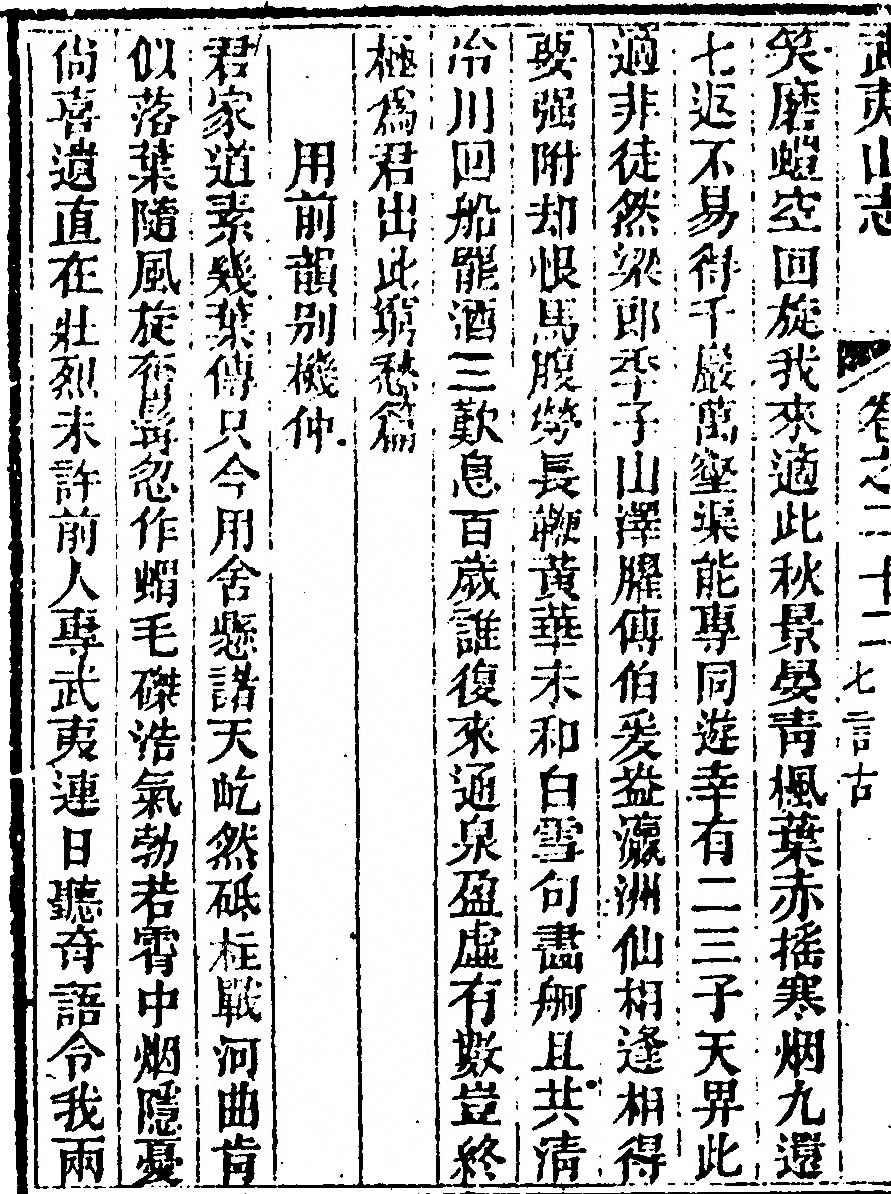 武夷山志 卷之二十二 七言古
笑磨螘空回旋我來適此秋景晏青楓葉赤搖寒烟九還
七返不易得千巖萬壑渠能專同遊幸有二三子天畀此
適非徒然梁郎季子山澤臞傅伯爰盎瀛洲仙相逢相得
要强附却恨馬腹勞長鞭黃華未和白雪句畫舸且共清
泠川回船罷酒三歎息百歲誰復來通泉盈虛有數豈終
極爲君出此窮愁篇
用前韻別機仲
君家道素幾葉傳只今用舍懸諸天屹然砥柱戰河曲肯
似落葉隨風旋奮髯忽作蝟毛磔浩氣勃若霄中烟隱憂
尙喜遺直在壯烈未許前人專武夷連日聽奇語令我兩